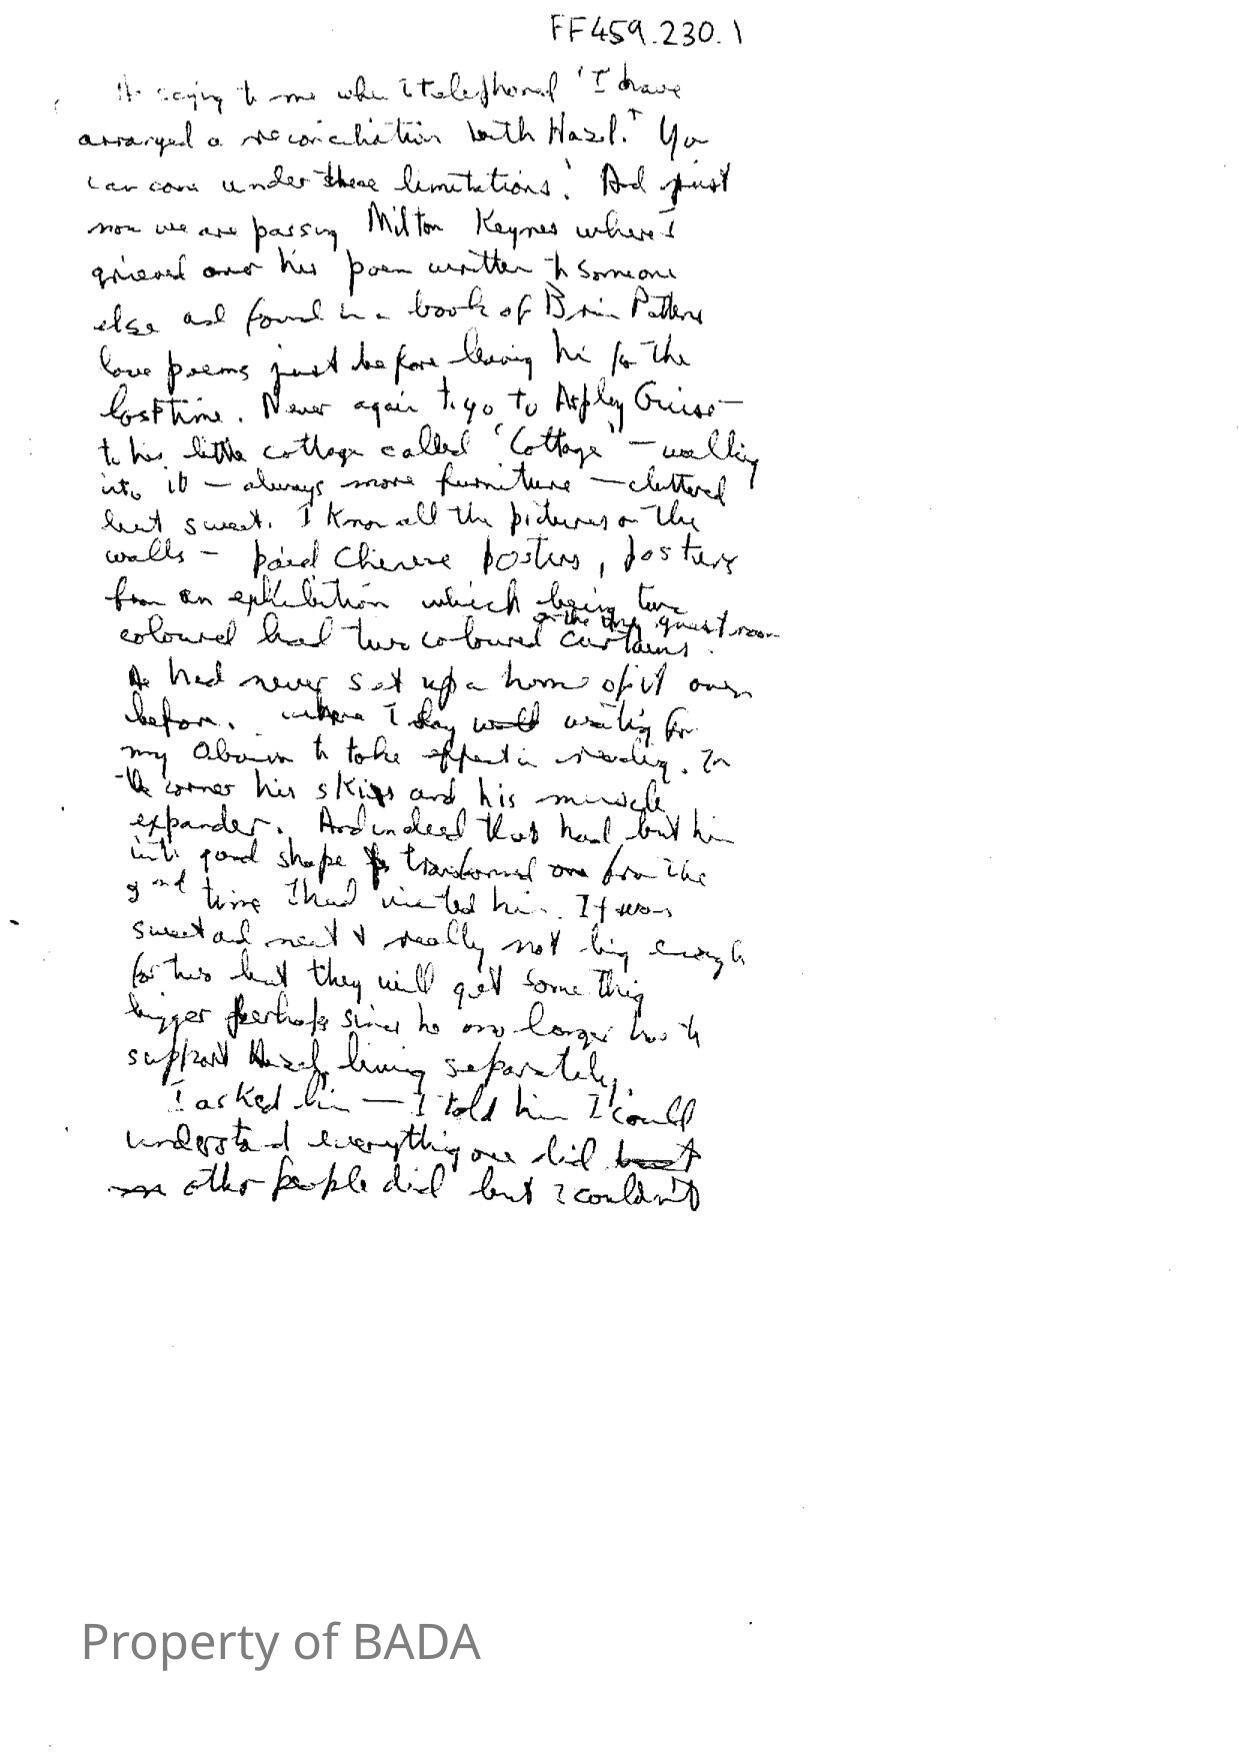 FF459.230.1
He saying to me when I telephoned 'I have
arranged a reconciliation with Hazel. You
can come under these limitations.' And just
now we are passing Milton Keynes where I
grieved over his poem written to someone
else and found in a book of Brian Pattens
love poems just before leaving him for the
last time. Never again to go to Aspley Guise —
to his little cottage called 'Cottage' — walking
into it — always more furniture — cluttered
but sweet. I know all the pictures on the
walls — Chinese posters, posters
from an exhibition which being two
on the guest room
coloured had two coloured curtains.
He had never set up a home of it own
before. where I lay waiting for
my to take effect in reading. In
the corner his skis and his muscle
expander. And indeed that had but him
into good shape transformed one from the
time I had visited him. It was
sweet and neat & really not big enough
for two but they will get something
bigger perhaps since he no longer has to
support Hazel living separately.
I asked him — I told him I could
understand everything one did
other people did but I couldn't
Property of BADA